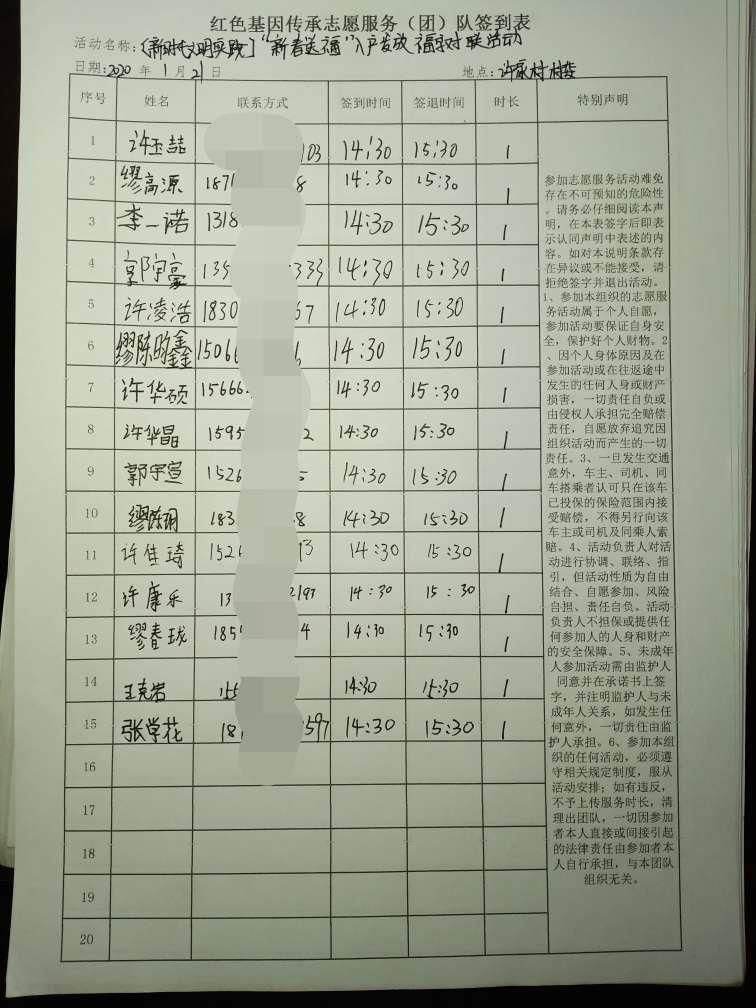 红色基因传承志愿服务（团）队签到表
活动名称：[新时代文明实践]“新春送福”入户发放福字对联活动
日期：2020年1月21日 地点：许家村村委
序号 姓名 联系方式 签到时间 签退时间 时长 特别声明
1 许玉喆 103 14:30 15:30 1
2 缪高源 187 8 14:30 15:30 1
3 李一诺 1318 14:30 15:30 1
4 郭宇豪 135 333 14:30 15:30 1
5 许凌浩 1830 67 14:30 15:30 1
6 缪陈昀鑫 1506 14:30 15:30 1
7 许华硕 15666 14:30 15:30 1
8 许华晶 1595 2 14:30 15:30 1
9 郭宇宣 1526 14:30 15:30 1
10 缪陈玥 183 8 14:30 15:30 1
11 许佳琦 1526 93 14:30 15:30 1
12 许康乐 13 2193 14:30 15:30 1
13 缪春珑 185 4 14:30 15:30 1
14 王克岩 155 14:30 15:30 1
15 张学花 18 597 14:30 15:30 1
16
17
18
19
20
参加志愿服务活动难免
存在不可预知的危险性
。请务必仔细阅读本声
明，在本表签字后即表
示认同声明中表述的内
容。如对本说明条款存
在异议或不能接受，请
拒绝签字并退出活动。
1、参加本组织的志愿服
务活动属于个人自愿，
参加活动要保证自身安
全，保护好个人财物。2
、因个人身体原因及在
参加活动或在往返途中
发生的任何人身或财产
损害，一切责任自负或
由侵权人承担完全赔偿
责任，自愿放弃追究因
组织活动而产生的一切
责任。3、一旦发生交通
意外，车主、司机、同
车搭乘者认可只在该车
已投保的保险范围内接
受赔偿，不得另行向该
车主或司机及同乘人索
赔。4、活动负责人对活
动进行协调、联络、指
引，但活动性质为自由
结合、自愿参加、风险
自担、责任自负。活动
负责人不担保或提供任
何参加人的人身和财产
的安全保障。5、未成年
人参加活动需由监护人
同意并在承诺书上签
字，并注明监护人与未
成年人关系，如发生任
何意外，一切责任由监
护人承担。6、参加本组
织的任何活动，必须遵
守相关规定制度，服从
活动安排；如有违反，
不予上传服务时长，清
理出团队，一切因参加
者本人直接或间接引起
的法律责任由参加者本
人自行承担，与本团队
组织无关。